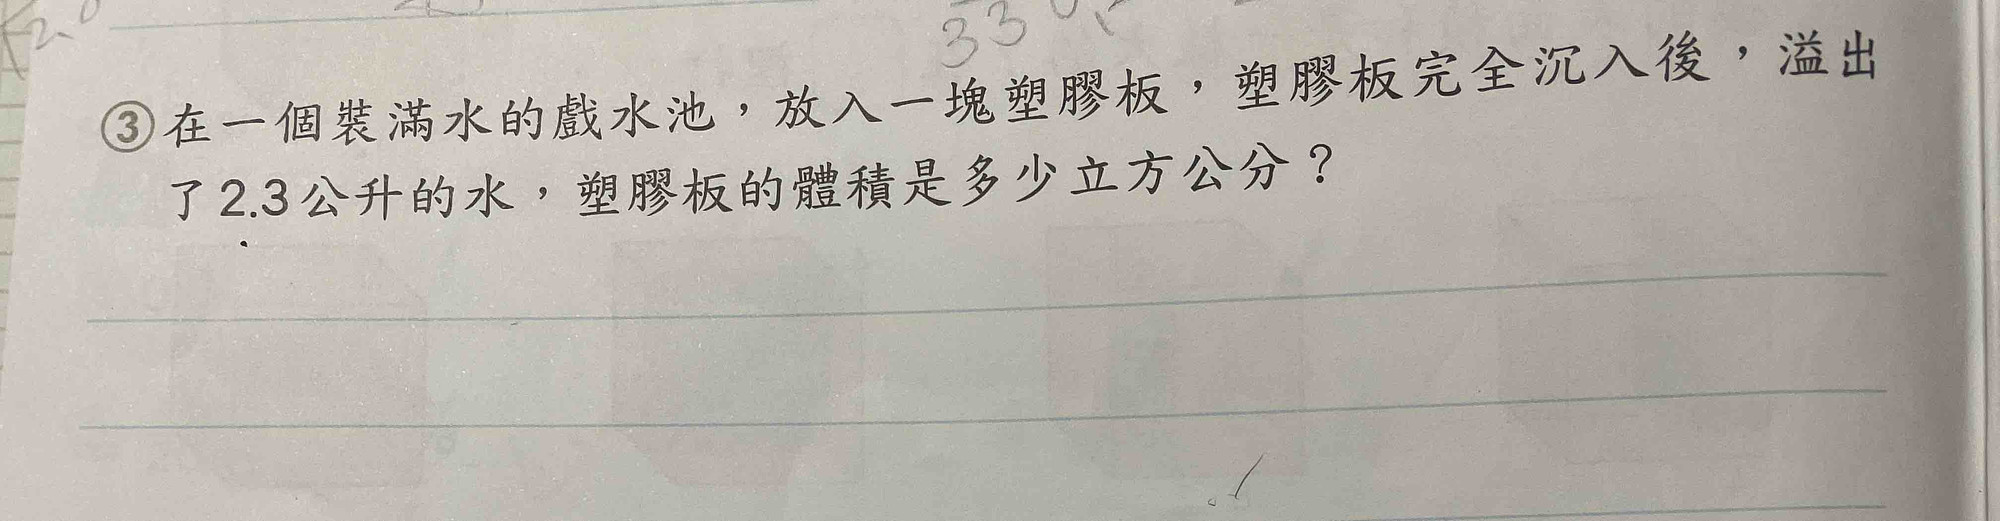 33
③在一個裝滿水的戲水池，放入一塊塑膠板，塑膠板完全沉入後，溢出
了2.3公升的水，塑膠板的體積是多少立方公分？